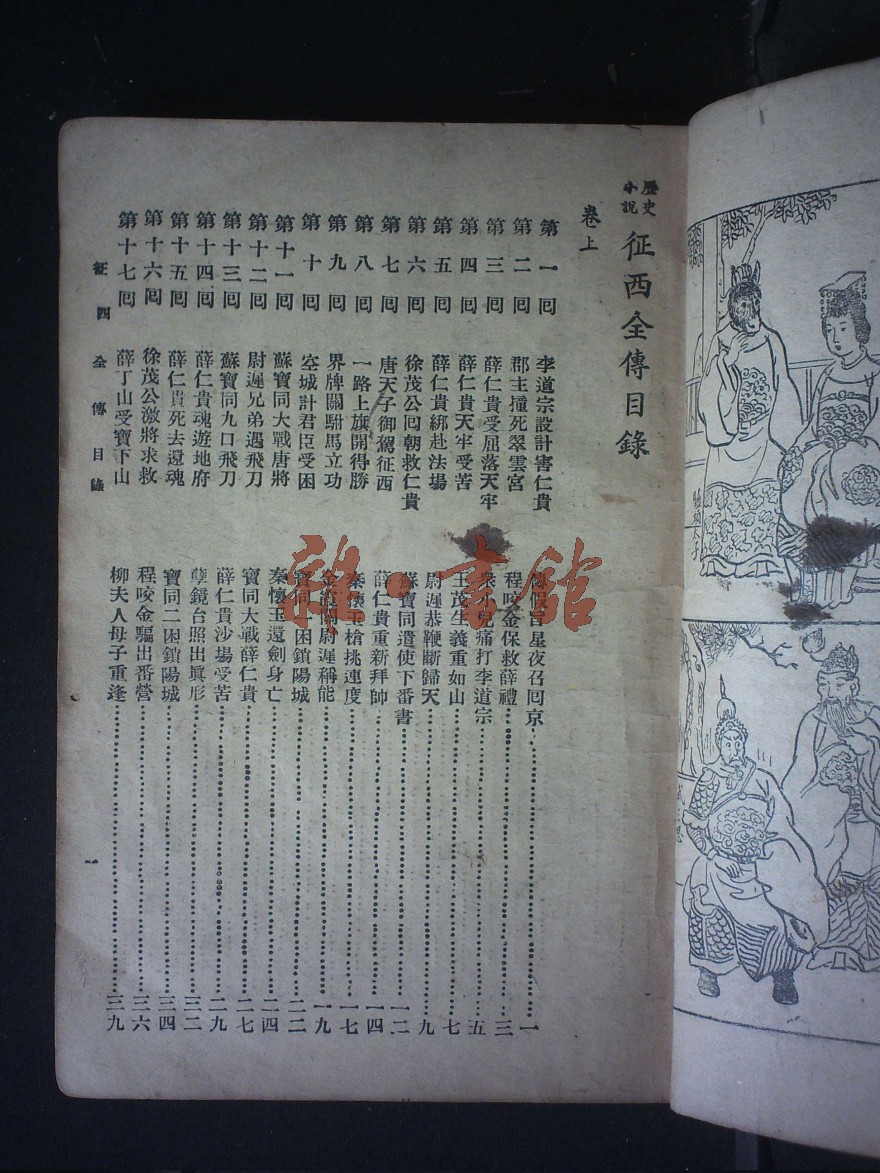 歷史
小說
征西全傳目錄
卷上
第一囘 李道宗設計害仁貴 傳假旨星夜召囘京 一
第二囘 郡主撞死翠雲宮 程咬金保救薛禮 三
第三囘 薛仁貴受屈落天牢 衆 兒痛打李道宗 五
第四囘 薛仁貴天牢受苦 王茂生義重如山 七
第五囘 薛仁貴綁赴法場 尉遲恭鞭斷歸天 九
第六囘 徐茂公囘朝救仁貴 蘇寶同遣使下番書 一二
第七囘 唐天子御駕征西 薛仁貴重新拜帥 一四
第八囘 一路上旗開得勝 秦懷玉槍挑連度 一七
第九囘 界牌關駙馬立功 金霞關尉遲稱能 一九
第十囘 空城計君臣受困 寶同 困鎖陽城 二二
第十一囘 蘇寶同大戰唐將 秦懷玉還劍身亡 二四
第十二囘 尉遲兄弟遇飛刀 寶同大戰薛仁貴 二七
第十三囘 蘇寶同九口飛刀 薛仁貴沙場受苦 二九
第十四囘 薛仁貴魂遊地府 孽鏡台照出眞形 三二
第十五囘 薛仁貴死去還魂 寶同二困鎖陽城 三四
第十六囘 徐茂公激將求救 程咬金騙出番營 三六
第十七囘 薛丁山受寶下山 柳夫人母子重逢 三九
征西全傳 目錄
一
雜·書館